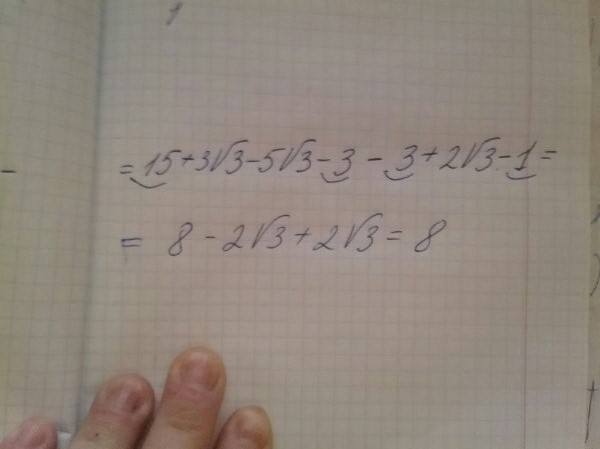 = 15+3√3-5√3-3-3+2√3-1=
= 8-2√3+2√3=8